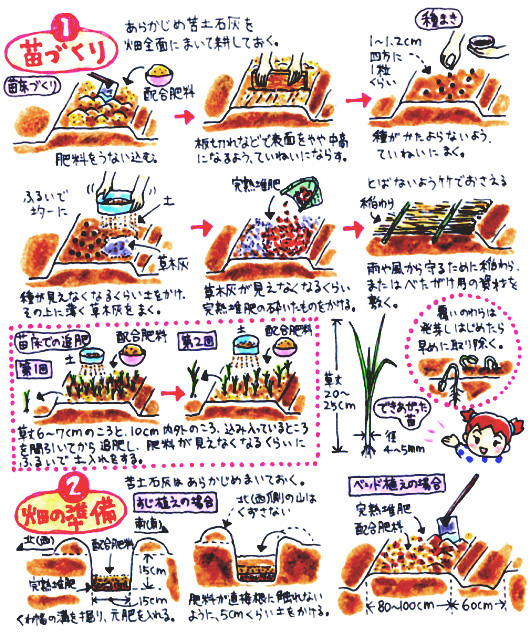 1
苗づくり
あらかじめ苦土石灰を
畑全面にまいて耕しておく。
苗床づくり
配合肥料
肥料をうない込む。
板切れなどで表面をやや中高
になるよう、ていねいにならす。
種まき
1〜1.2cm
四方に
1粒
くらい
種がかたよらないよう、
ていねいにまく。
ふるいで
均一に
土
草木灰
種が見えなくなるくらい土をかけ、
その上に薄く草木灰をまく。
完熟堆肥
草木灰が見えなくなるくらい
完熟堆肥の砕いたものをかける。
とばないよう竹でおさえる
稲わら
雨や風から守るために稲わら、
またはべたがけ用の資材を
敷く。
苗床での追肥
第1回
土
配合肥料
第2回
土
配合肥料
草丈6〜7cmのころと、10cm内外のころ、込み入っているところ
を間引いてから追肥し、肥料が見えなくなるくらいに
ふるいで土入れをする。
草丈
20〜
25cm
できあがった
苗
径
4〜5mm
覆いのわらは
発芽しはじめたら
早めに取り除く。
2
畑の準備
苦土石灰はあらかじめまいておく。
すじ植えの場合
北(西)
南(東)
配合肥料
完熟堆肥
15cm
15cm
くわ幅の溝を掘り、元肥を入れる。
北(西)側の山は
くずさない
肥料が直接根に触れない
ように、5cmくらい土をかける。
ベッド植えの場合
完熟堆肥
配合肥料
80〜100cm
60cm